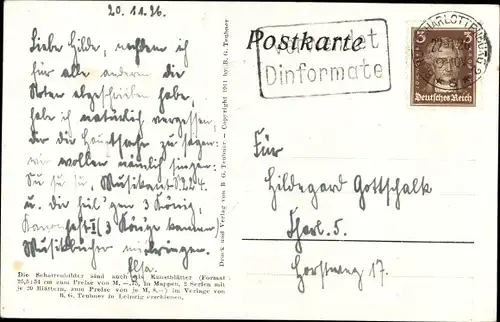 20. 11. 26.
Liebe Hilde, nachdem ich
für alle anderen die
Noten abgeschrieben habe,
habe ich natürlich vergessen
dir die Hauptsache zu sagen:
wir wollen nämlich singen:
Su su su, Musikant S. 224.
u. die heil'gen 3 König,
Kanonheft II (3 Könige kamen)
Musikbücher mitbringen.
Elsa.
Die Schattenbilder sind auch als Kunstblätter (Format
25,5:34 cm zum Preise von M, —.75, in Mappen, 2 Serien mit
je 20 Blättern, zum Preise von je M, 8,—) im Verlage von
B. G. Teubner in Leipzig erschienen.
Druck und Verlag von B. G. Teubner · Copyright 1911 by B. G. Teubner
Postkarte
Dinformate
CHARLOTTENBURG 2
3 3
Deutsches Reich
Für
Hildegard Gottschalk
Charl. 5.
Horstweg 17.